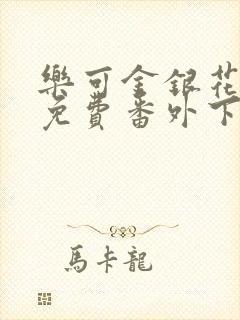 樂可金銀花
免費番外下
馬卡龍